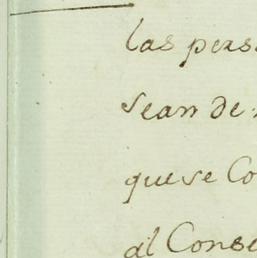 las pers
sean de
que se Co
al Conse